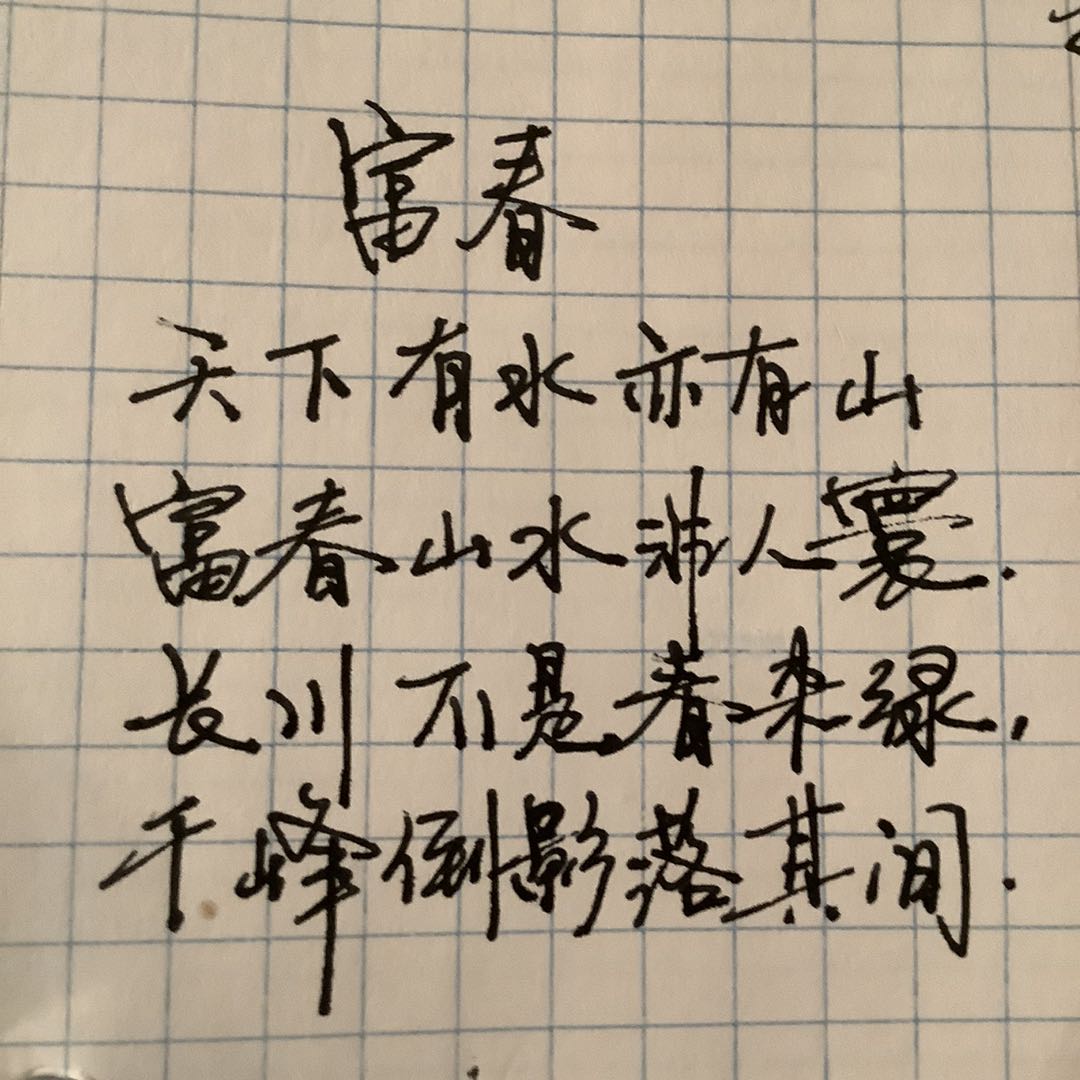 富春
天下有水亦有山
富春山水非人寰.
长川不是春来绿,
千峰倒影落其间.